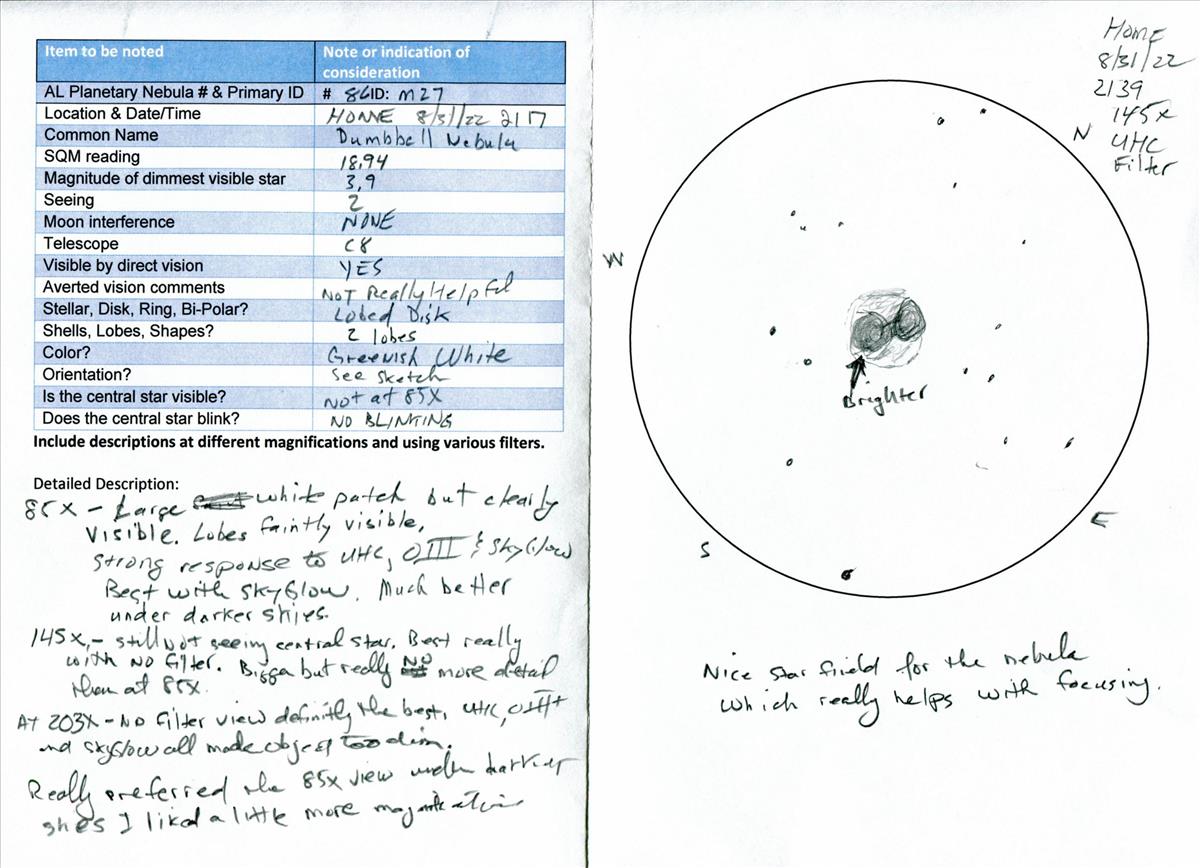 Item to be noted Note or indication of consideration
AL Planetary Nebula # & Primary ID # 86 ID: M27
Location & Date/Time HOME 8/31/22 2117
Common Name Dumbbell Nebula
SQM reading 18.94
Magnitude of dimmest visible star 3.9
Seeing 2
Moon interference NONE
Telescope C8
Visible by direct vision YES
Averted vision comments NOT Really Helpful
Stellar, Disk, Ring, Bi-Polar? Lobed Disk
Shells, Lobes, Shapes? 2 lobes
Color? Greenish White
Orientation? See Sketch
Is the central star visible? Not at 85X
Does the central star blink? NO BLINKING
Include descriptions at different magnifications and using various filters.
Detailed Description:
85X - Large white patch but clearly
visible. Lobes faintly visible.
Strong response to UHC, OIII & SkyGlow
Best with SkyGlow. Much better
under darker skies.
145X, - still not seeing central star. Best really
with NO Filter. Bigga but really NO more detail
than at 85X.
At 203X - NO Filter view definitly the best, UHC, OIII
and SkyGlow all made object too dim.
Really preferred the 85X view under darker
skies I liked a little more magnification
Home
8/31/22
2139
145x
UHC
Filter
N
W
Brighter
E
S
Nice star field for the nebula
which really helps with focusing.